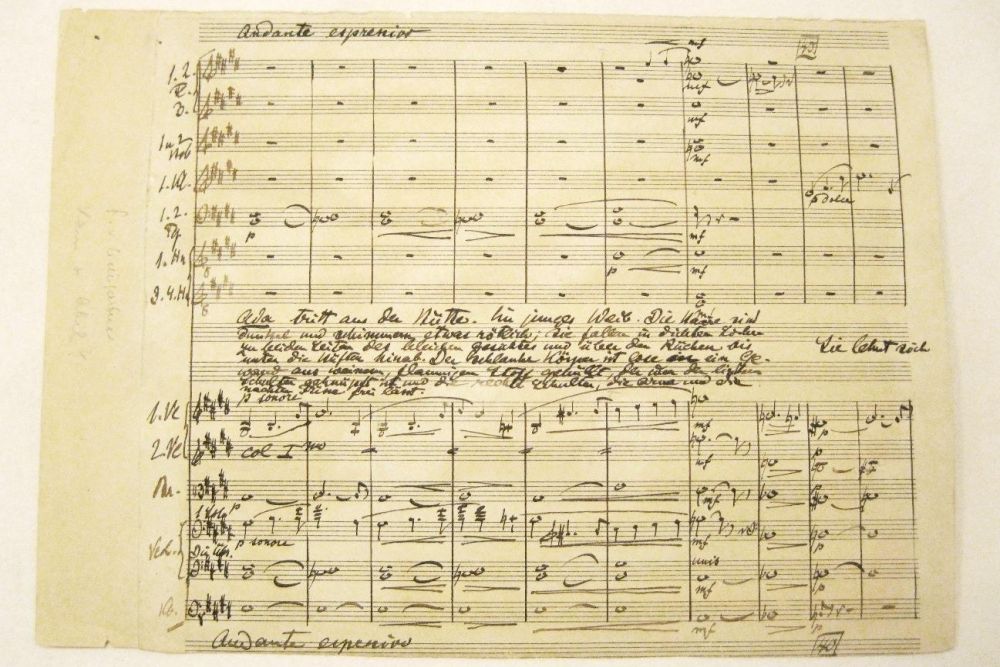 Andante espressivo
40
1. 2.
3.
1. 2.
mf
mf
mf
mf
p dolce
p
mf
p
mf
mf
Ada tritt aus der Hütte. Ein junges Weib. Die Haare sind
dunkel und schimmern etwas rötlich; sie fallen in dichten Locken
zu beiden Seiten des bleichen Gesichtes und über den Rücken bis
unter die Hüften hinab. Der schlanke Körper ist lose in ein Ge-
wand aus weissem, flaumigen Stoff gehüllt, der über der linken
Schulter geknüpft ist und die rechte Schulter, die Arme und die
nackten Füsse frei lässt.
Sie lehnt sich
p sonore
mf
p
col I mo
mf
p
mf
1 Solo p
p sonore
mf
p
unis
mf
p
mf
p
Andante espressivo
40